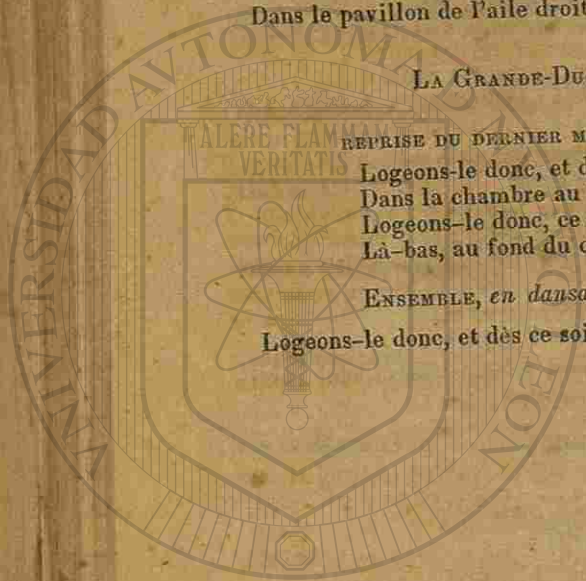 Dans le pavillon de l'aile droit
LA GRANDE-DU
REPRISE DU DERNIER M
Logeons-le donc, et d
Dans la chambre au
Logeons-le donc, ce
Là-bas, au fond du c
ENSEMBLE, en dansa
Logeons-le donc, et dès ce soi
UNIVERSIDAD AVTONOMA DE NVEVO LEON
ALERE FLAMMAM
VERITATIS